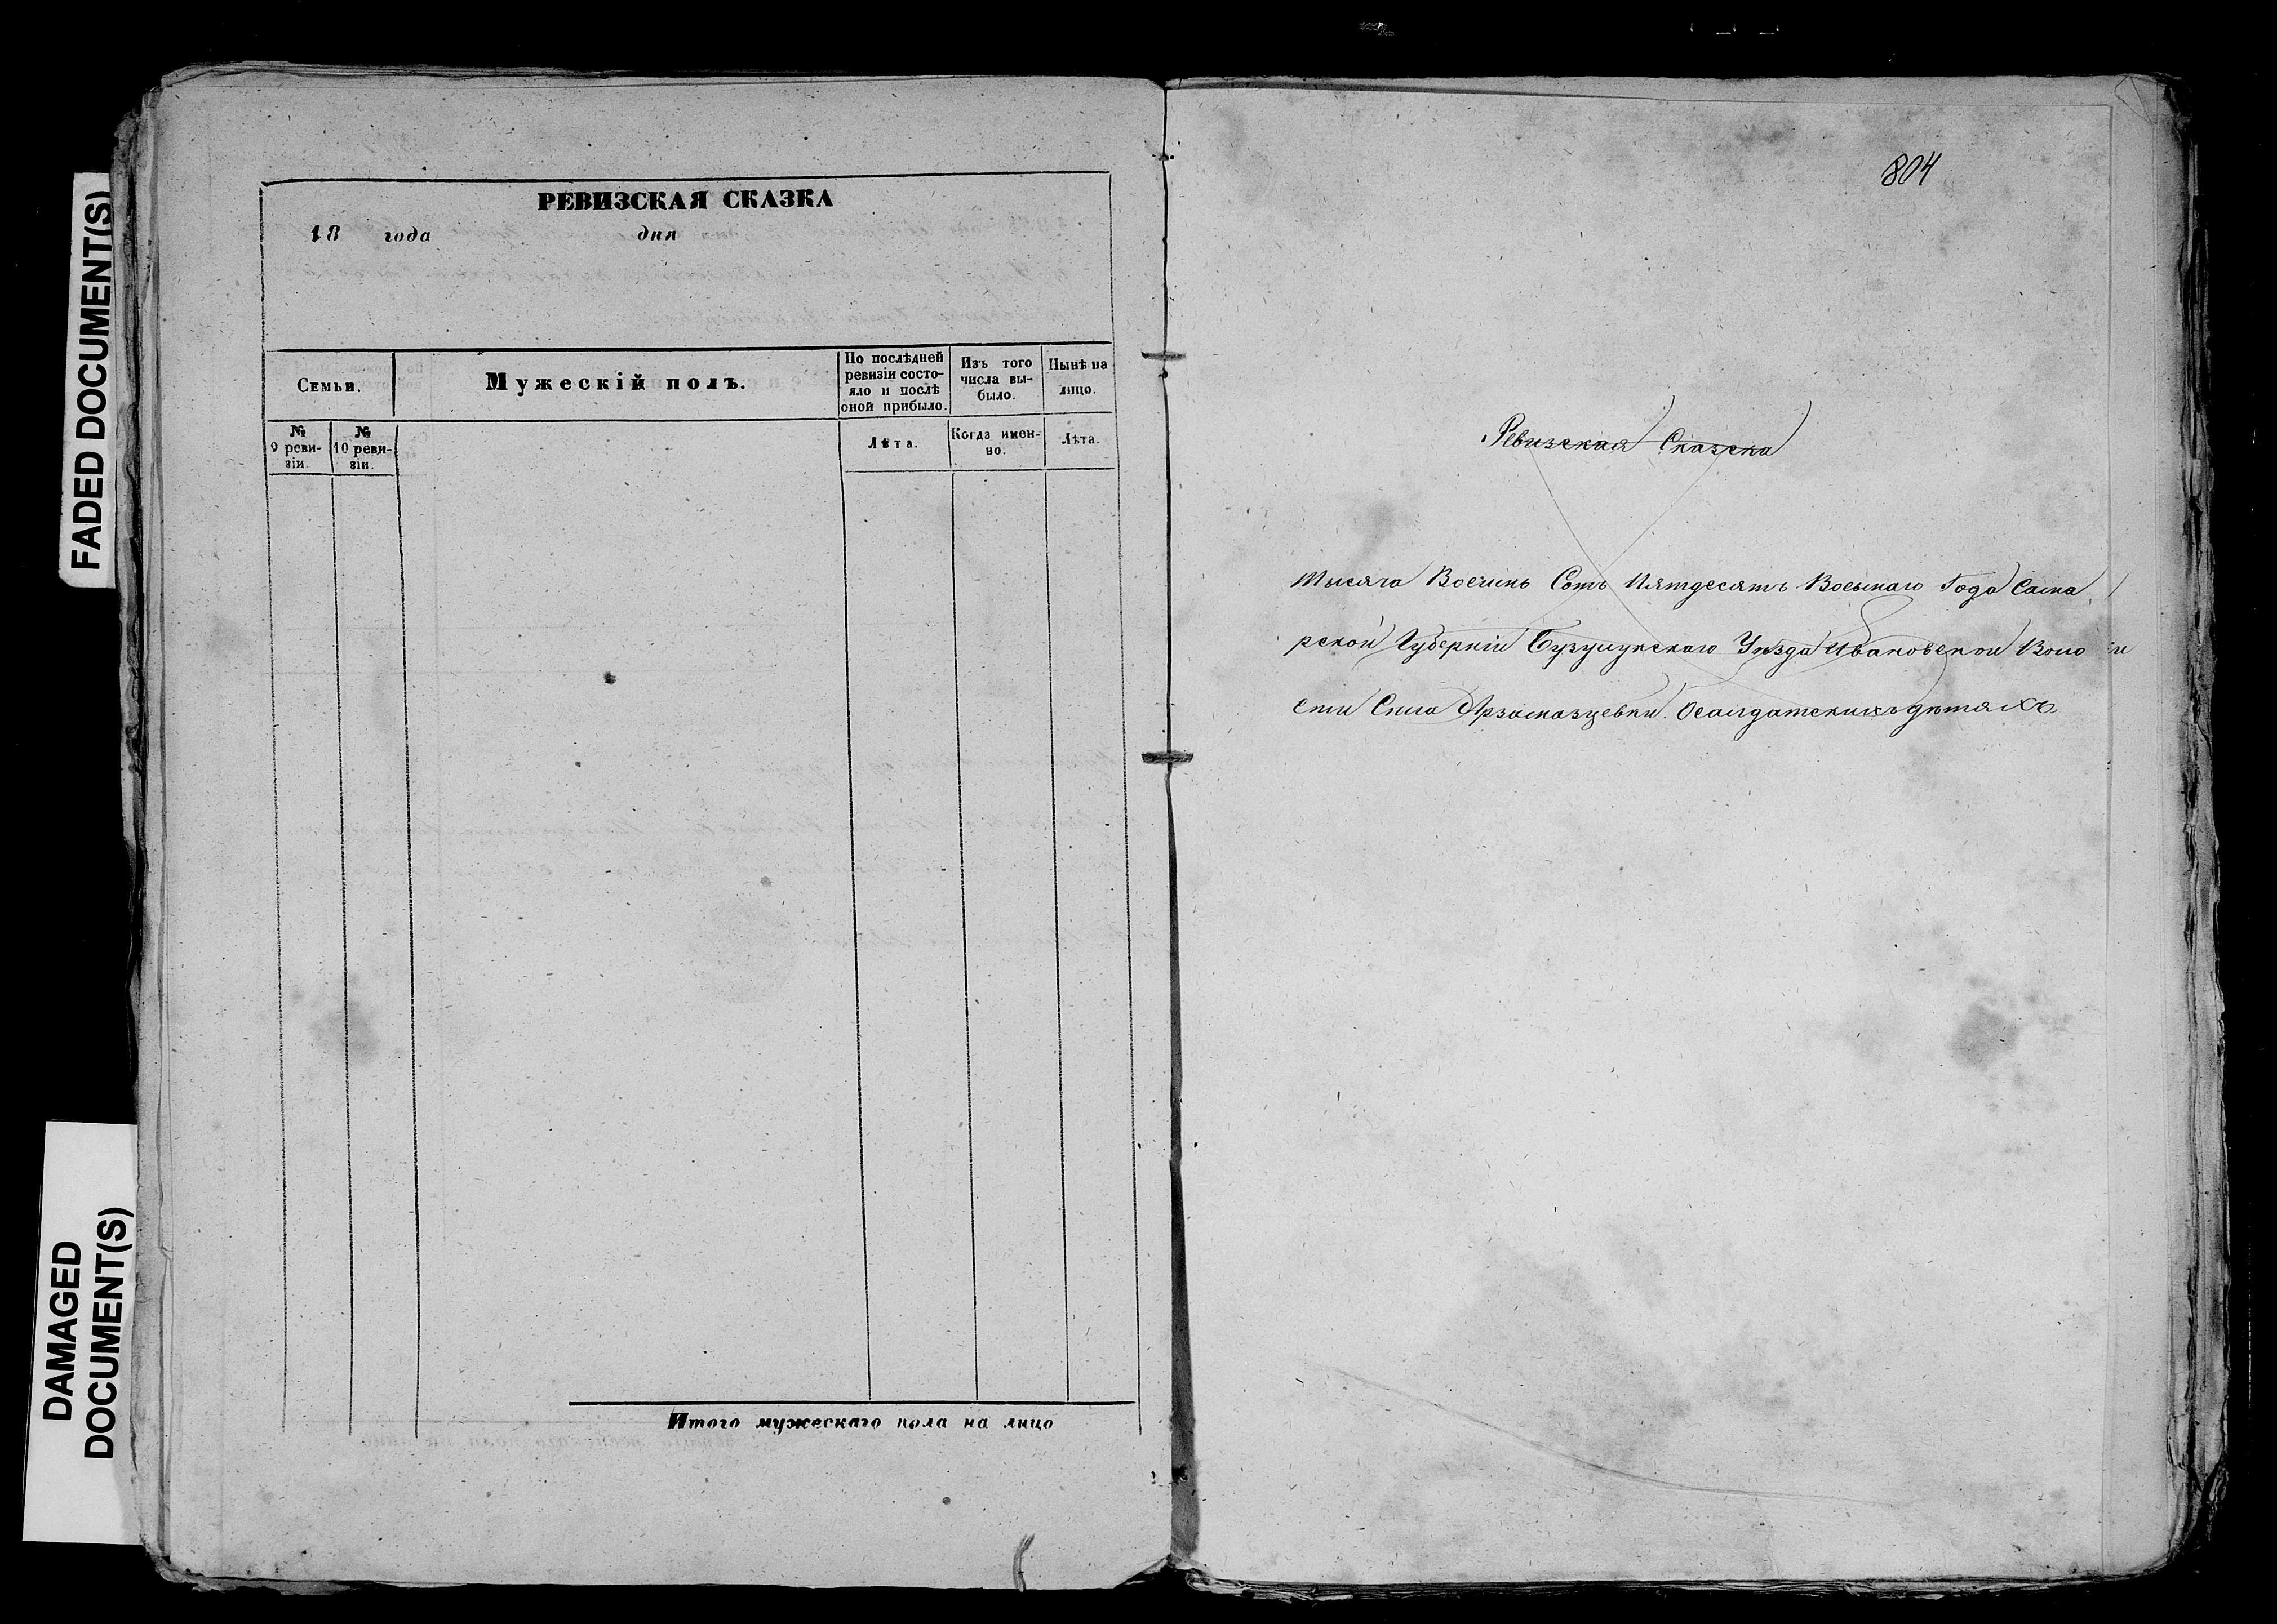 FADED DOCUMENT(S)
DAMAGED
DOCUMENT(S)
РЕВИЗСКАЯ СКАЗКА
18 года дня
Семьи.
Мужескій полъ.
По послѣдней
ревизіи состо-
яло и послѣ
оной прибыло.
Изъ того
числа вы-
было.
Нынѣ на
лицо.
№
9 реви-
зіи.
№
10 реви-
зіи.
Лѣта.
Когда имен-
но.
Лѣта.
Итого мужескаго пола на лицо
804
Ревизская Сказска
Тысяча Восимь Сотъ Пятдесятъ Восьмаго Года Сама
рской Губерніи Бузулукскаго Уѣзда Ивановской Воло
сти Сила Арзамазцевки. Осалдатскихъ дѣтяхъ